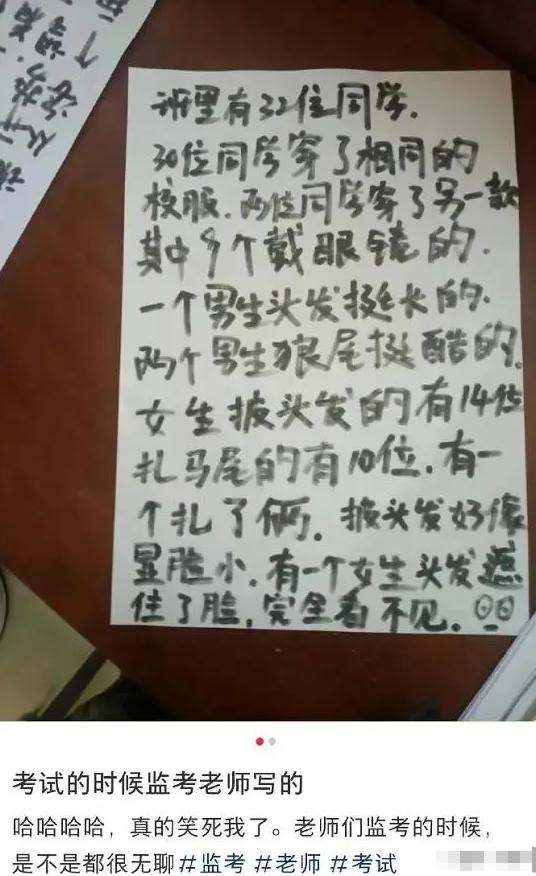 班里有32位同学.
30位同学穿了相同的
校服.两位同学穿了另一款
其中9个戴眼镜的.
一个男生头发挺长的.
两个男生狼尾挺酷的.
女生披头发的有14位
扎马尾的有10位.有一
个扎了俩.披头发好像
显脸小.有一个女生头发遮
住了脸,完全看不见.
考试的时候监考老师写的
哈哈哈哈，真的笑死我了。老师们监考的时候，
是不是都很无聊#监考 #老师 #考试